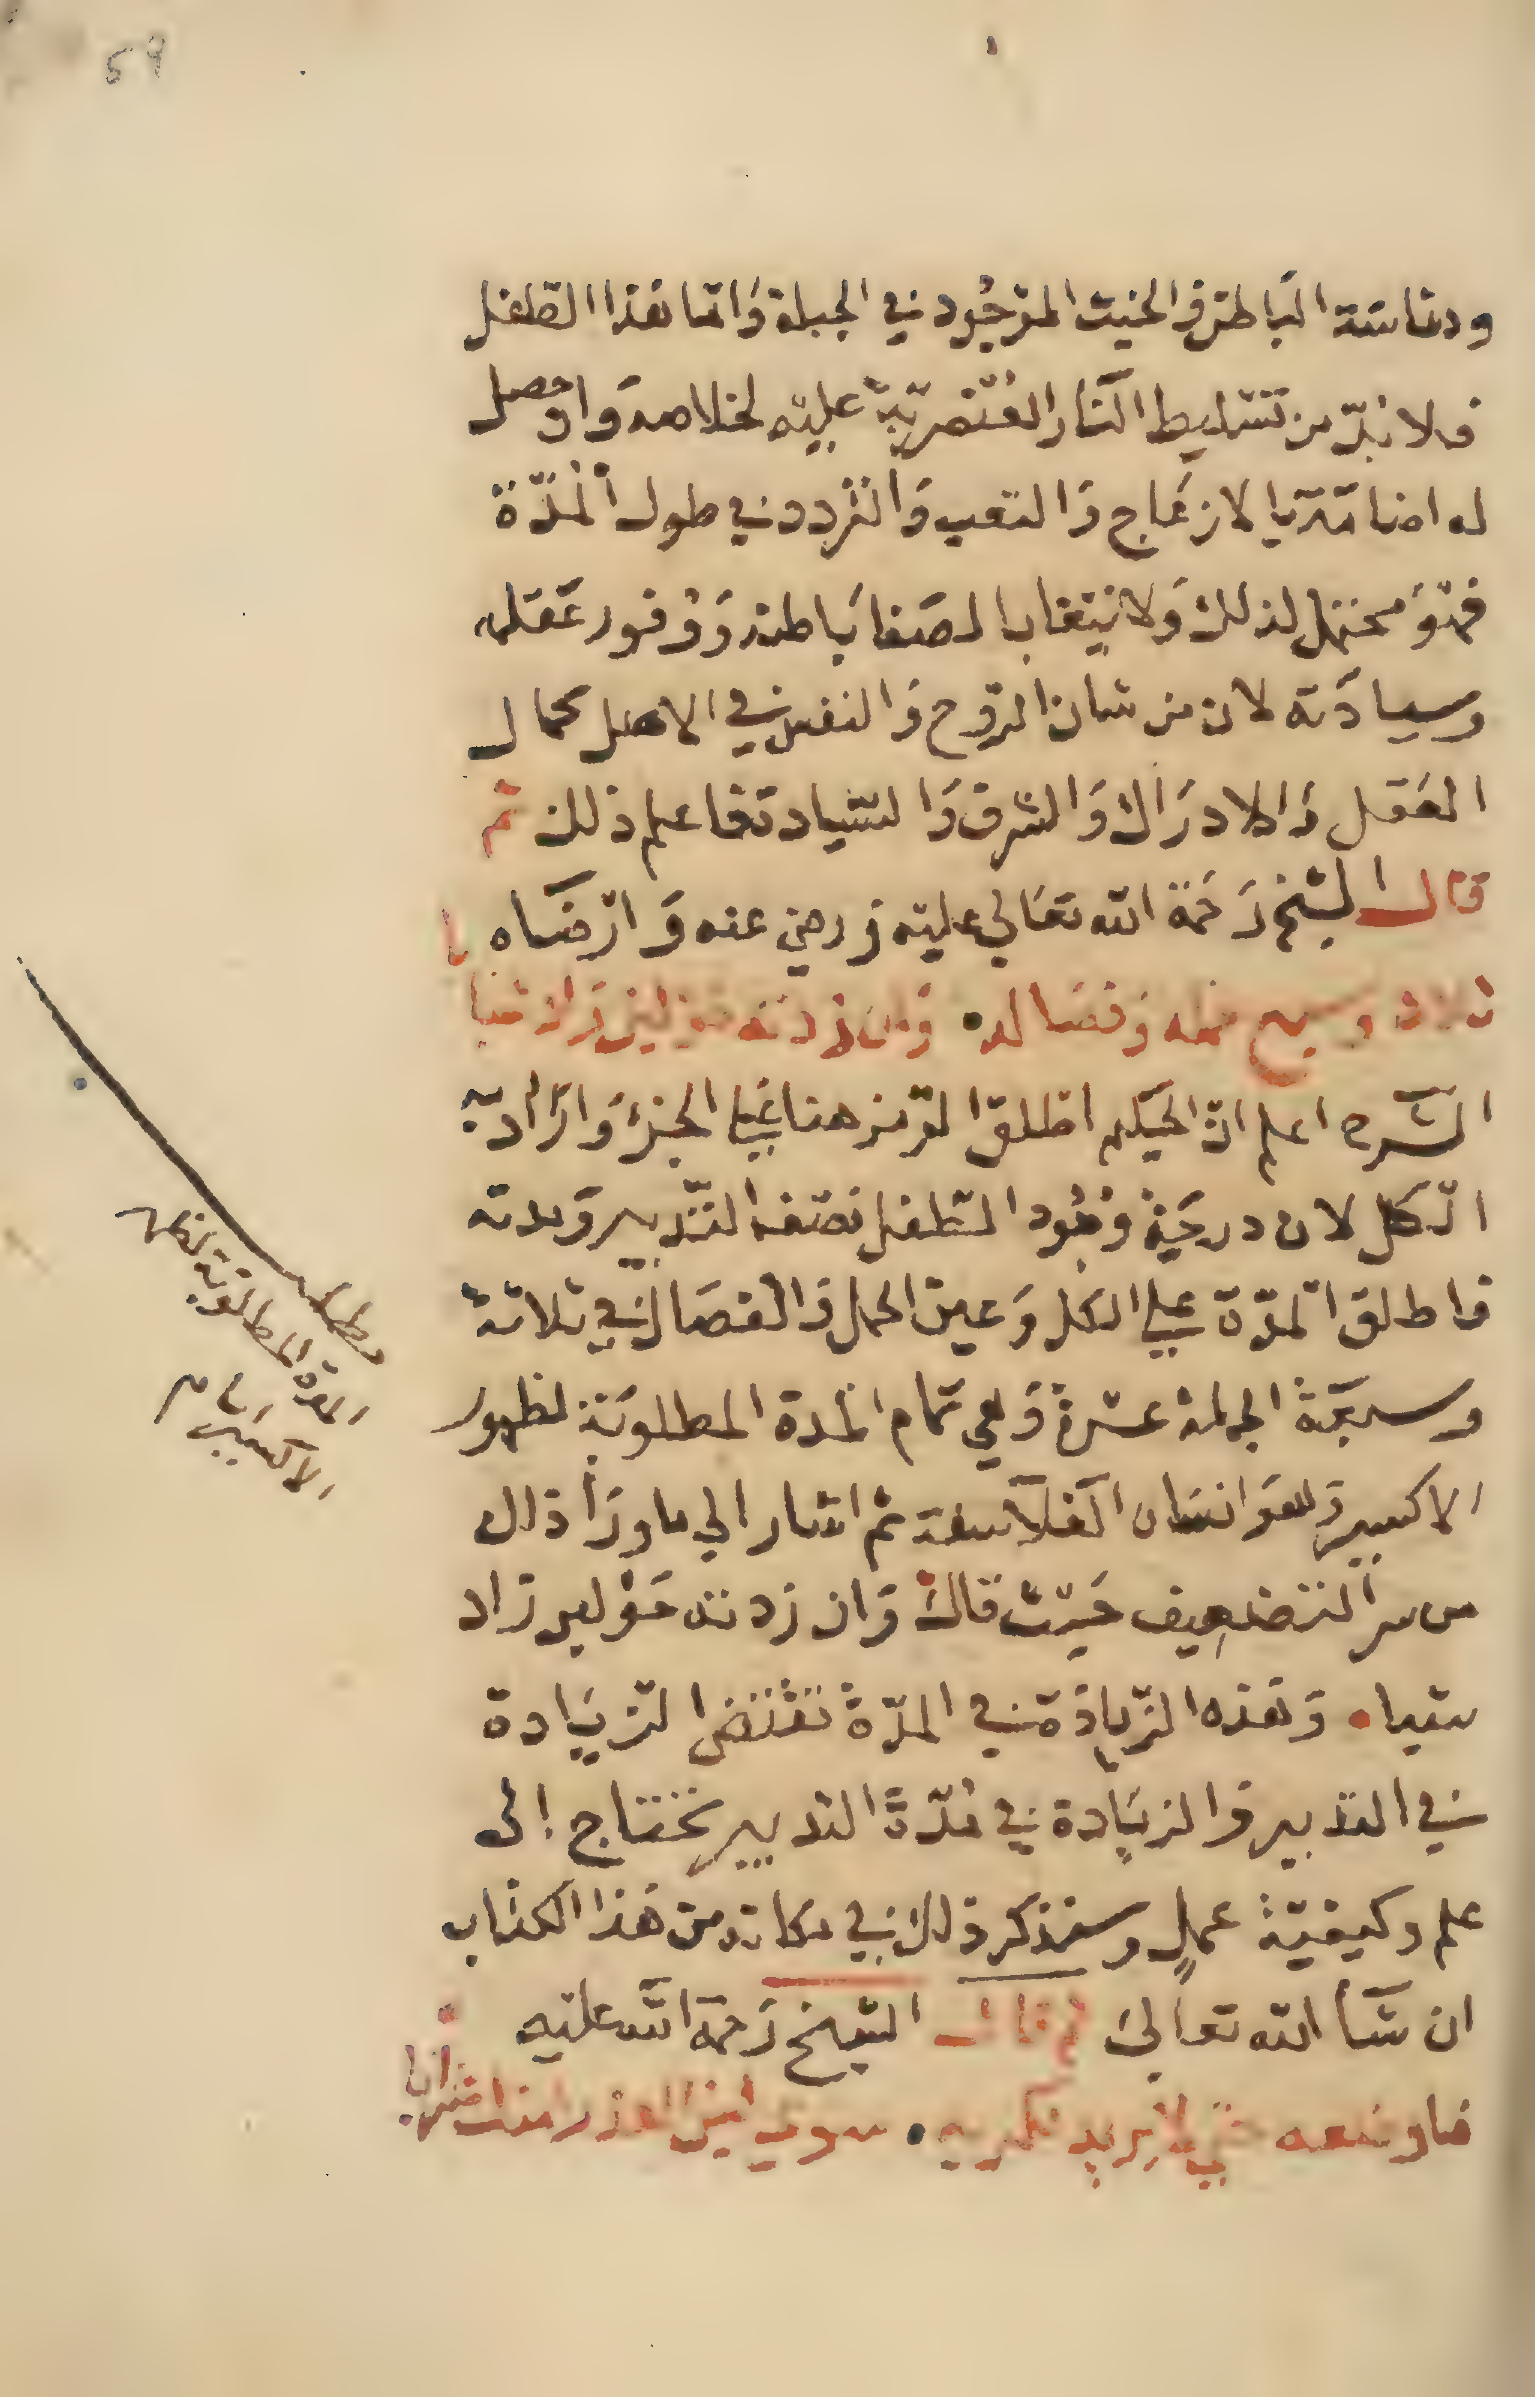 59
ودناسة الباطن والخبث الموجود في الجبلة وَامّا هَذا الطفل
فلا بُدّ من تَسْليط النار العُنْصريّة عليْه لخلاصه وَاوصل
له اضامَّة يا لانزعَاج وَالتعب وَالتردد في طول المُدّة
فهْوَ محتمل لذلك وَلا يَتغاب لصَفا بَاطنه وَوُفور عَقله
وسيادَته لان من شان الروح وَالنفس في الاصل كمال
العَقل وَالادرَاك وَالشرف وَالسيادة فاعلم ذلك ثم
قال الشيخ رَحْمَة الله تعَالي عليْه وَرضي عنه وَارْضَاه
ثلاث وسبع حمله وَفصَاله وَان زدته حولين زاد شبابا
الشرح اعلم انّ الحَكيم اطلق الرمز هنا عَلى الجزؤ وَارَادَ به
الكل لان درجَة وجُود الطفل نصف التدبير وَمدته
فاطلق المدّة علي الكل وَعين الحمل وَالفصَال في ثلاثة
وسبعَة الجملة عشرة وَهي تمام المدة المطلوبَة لظهور
الاكسير وَهوَ انسَان الفلَاسفة ثم اشار الي ما ورَأ ذلك
من سر التضعيف حَيْث قال وَان زدته حَوْلين زاد
شبابا وَهَذه الزيادَة في المدّة تقتضى الزيَادة
في التدبير وَالزيَادة في مُدّة التدبير تحتاج الى
علم وكيفيّة عملٍ وسنذكر ذلك في مكانه من هَذا الكتاب
ان شَأ الله تعالىَ ثم قال الشيخ رَحمَة الله عليْه
المدة المطلوبة لظهور
الاكسير